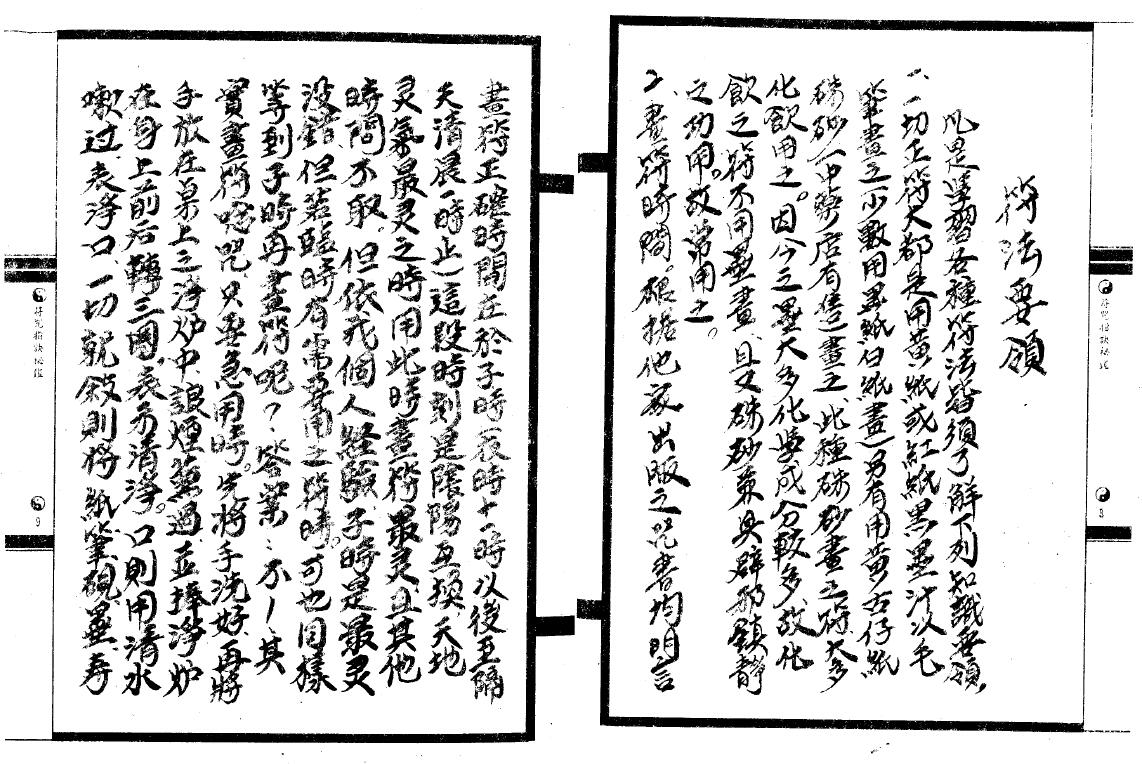 符法要領
凡是學習各種符法皆須了解下列知識要領,
一、一切正符大都是用黃紙或紅紙黑墨汁以毛
筆畫之少數用黑紙白紙畫)另有用黃古仔紙
硃砂(中藥店有售)畫之、此種硃砂畫之符大多
化飲用之。因今之墨大多化學成分較多、故化
飲之符不用墨畫、且又硃砂兼具辟邪鎮靜
之功用。故常用之。
2、畫符時間。根據他家出版之咒書均明言
符咒指訣秘鑑
8
畫符正確時間在於子時(夜時十一時以後至隔
天清晨一時止)這段時刻是陰陽互換、天地
灵氣最灵之時用此時畫符最灵、且其他
時間不取。但依我個人経驗、子時是最灵
沒錯、但若臨時有需要用之符時。可也同樣
等到子時再畫符呢?答案:不!其
實畫符唸咒只要急用時。先將手洗好、再將
手放在桌上之淨炉中、讓煙薰過、並捧淨炉
在身上前后轉三圈、表示清淨。口則用清水
漱过、表淨口、一切就敘則將紙筆硯、墨、寿
符咒指訣秘鑑
9